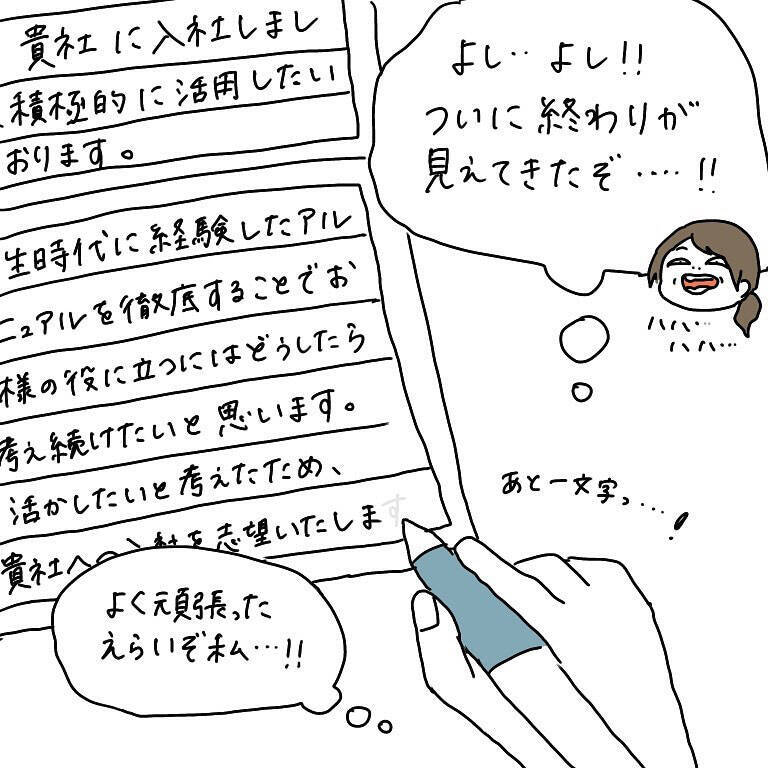 貴社に入社しまし
積極的に活用したい
おります。
生時代に経験したアル
ニュアルを徹底することでお
様の役に立つにはどうしたら
考え続けたいと思います。
活かしたいと考えたため、
貴社への入社を志望いたします
よし‥よし!!
ついに終わりが
見えてきたぞ‥‥!!
ハハ…
ハハハ…
あと一文字っ…!
よく頑張った
えらいぞ私…!!